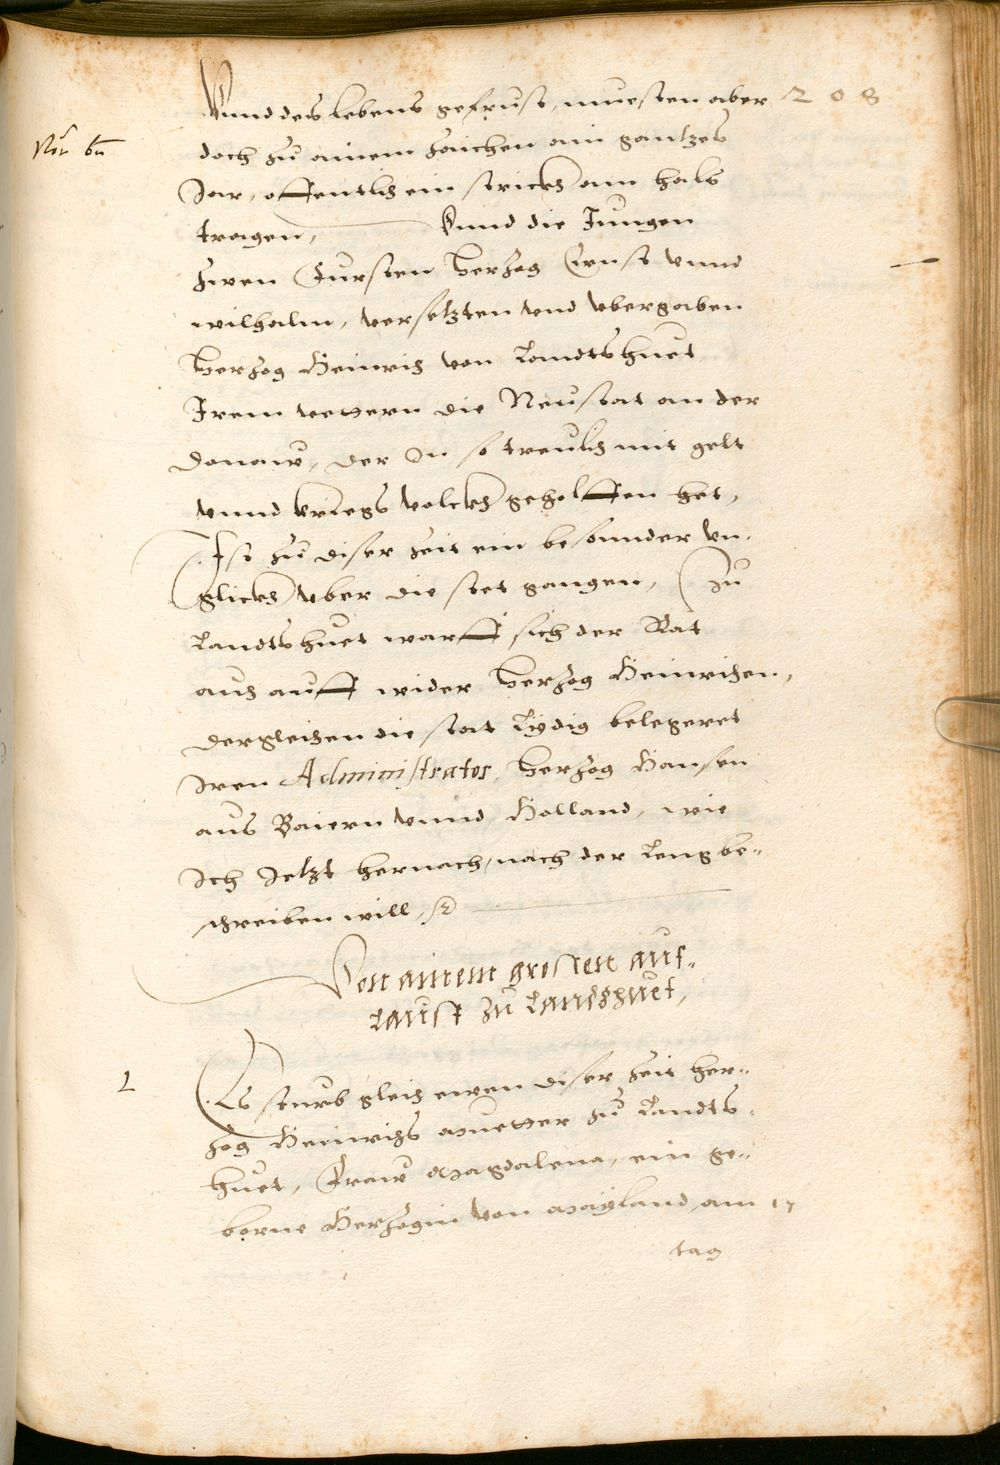 Vnnd des lebens gefrust, muesten aber 208
doch zu ainem zaichen ain gantzes
Jar, offentlich ein strickh am hals
tragen, Vnnd die Jungen
zwen Fursten Hertzog Ernst vnnd
wilhalm, versetzten vnd vbergaben
Hertzog Heinrich von Landtshuet
Irem vettern die Neustat an der
Donaw, der In so treulich mit gelt
vnnd kriegs volckh geholffen het,
Ist zu diser zeit ein besonnder vn-
glickh vber die stet gangen, Zu
Landtshuet warff sich der Rat
auch auff wider Hertzog Heinrichen,
dergleichen die stat Lydig belegeret
Iren Administrator, Hertzog Hansen
aus Baiern vnnd Holland, wie
Ich Jetzt hernach, nach der leng be-
schreiben will,
Von ainem grossen auf-
lauft zu Landshuet,
Es starb gleich ewen diser zeit Her-
tzog Heinrichs muetter zu Landts-
huet, Fraw Magdalena, ein ge-
borne Hertzogin von Mayland, am 17
tag